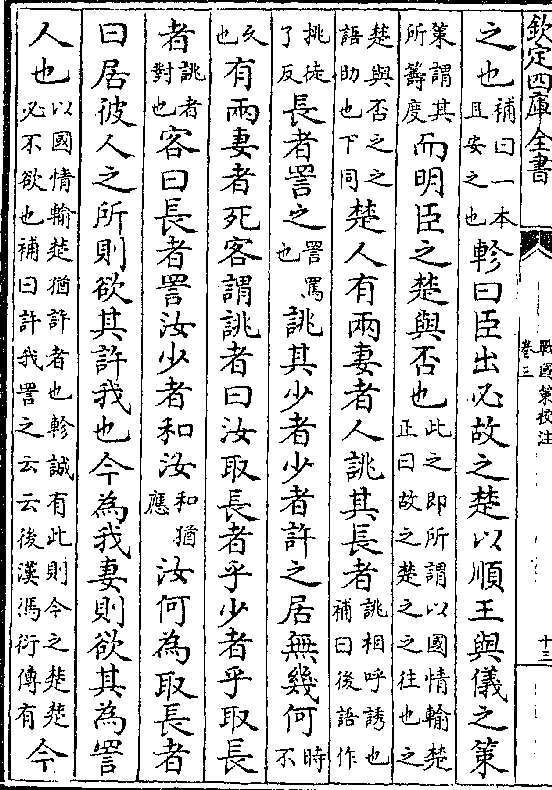 欽定四庫全書
戰國策校注
卷三
十三
之也補曰一本且安之也軫曰臣出必故之楚以順王與儀之策
策謂其所籌度而明臣之楚與否也此之即所謂以國情輸楚正曰故之楚之之往也之
楚與否之之語助也下同楚人有兩妻者人誂其長者誂相呼誘也補曰後語作
挑徒了反長者詈之詈罵也誂其少者少者許之居無幾何時不
久也有兩妻者死客謂誂者曰汝取長者乎少者乎取長
者誂者對也客曰長者詈汝少者和汝和猶應汝何為取長者
曰居彼人之所則欲其許我也今為我妻則欲其為詈
人也以國情輸楚猶許者也軫誠有此則今之楚楚必不欲也補曰許我詈之云云後漢馮衍傳有今